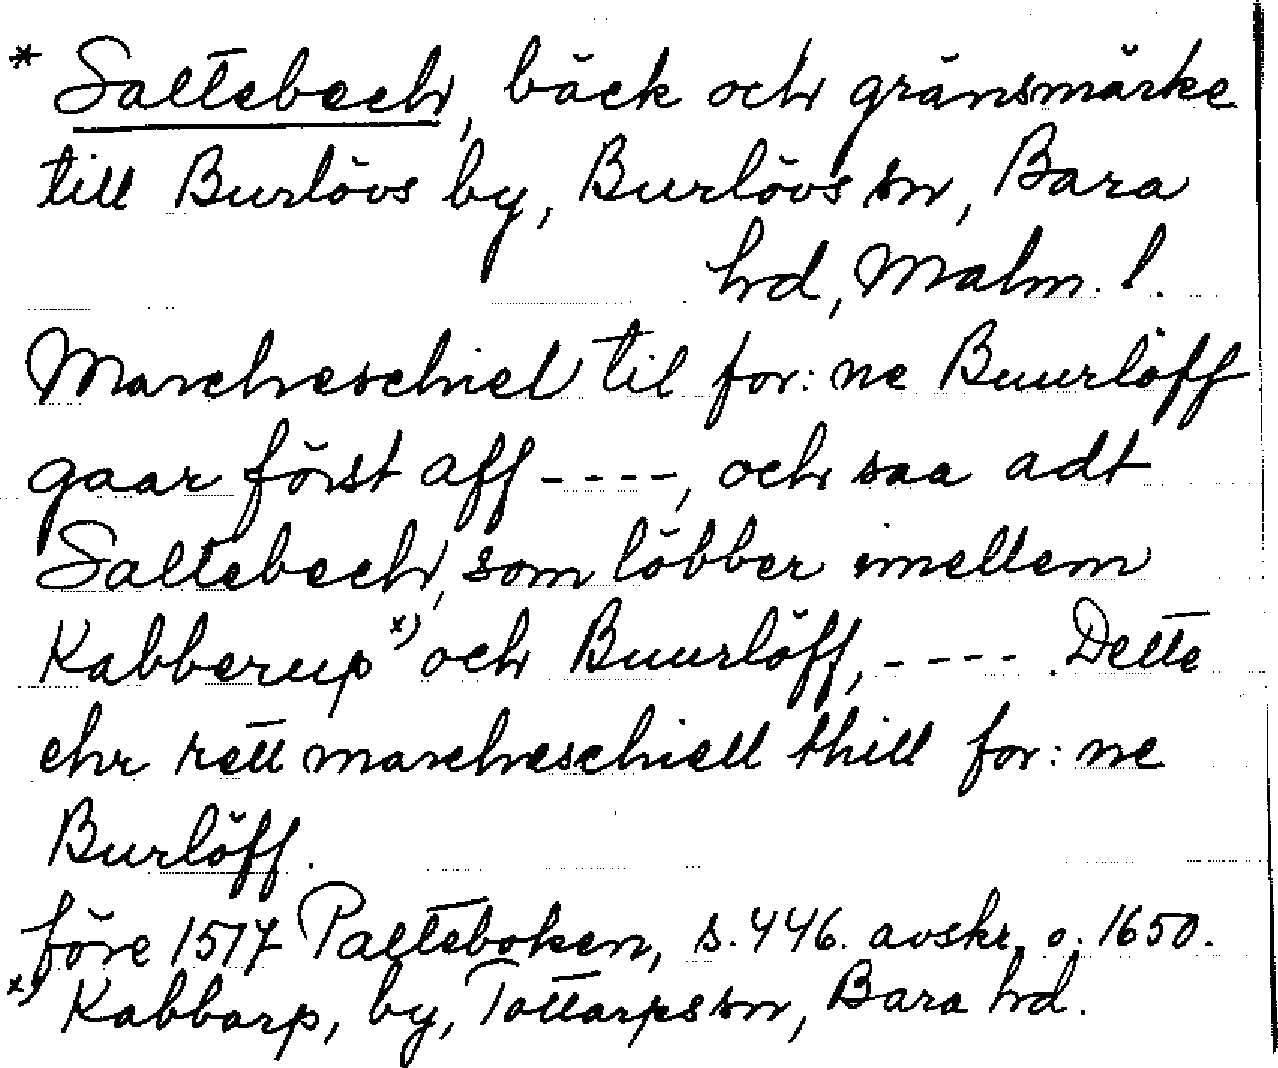 * Saltebech, bäck och gränsmärke
till Burlövs by, Burlövs sn, Bara
hd, Malm. l.
Marcheschiel til for: ne Buurlöff
gaar först aff ----, och saa adt
Saltebech, som löbber imellem
Kabberup x) och Buurlöff, ----. Dette
ehr rett marcheschiell thill for: ne
Burlöff.
före 1517 Palteboken, s. 446. avskr. o. 1650.
x) Kabbarp, by, Tottarps sn, Bara hd.